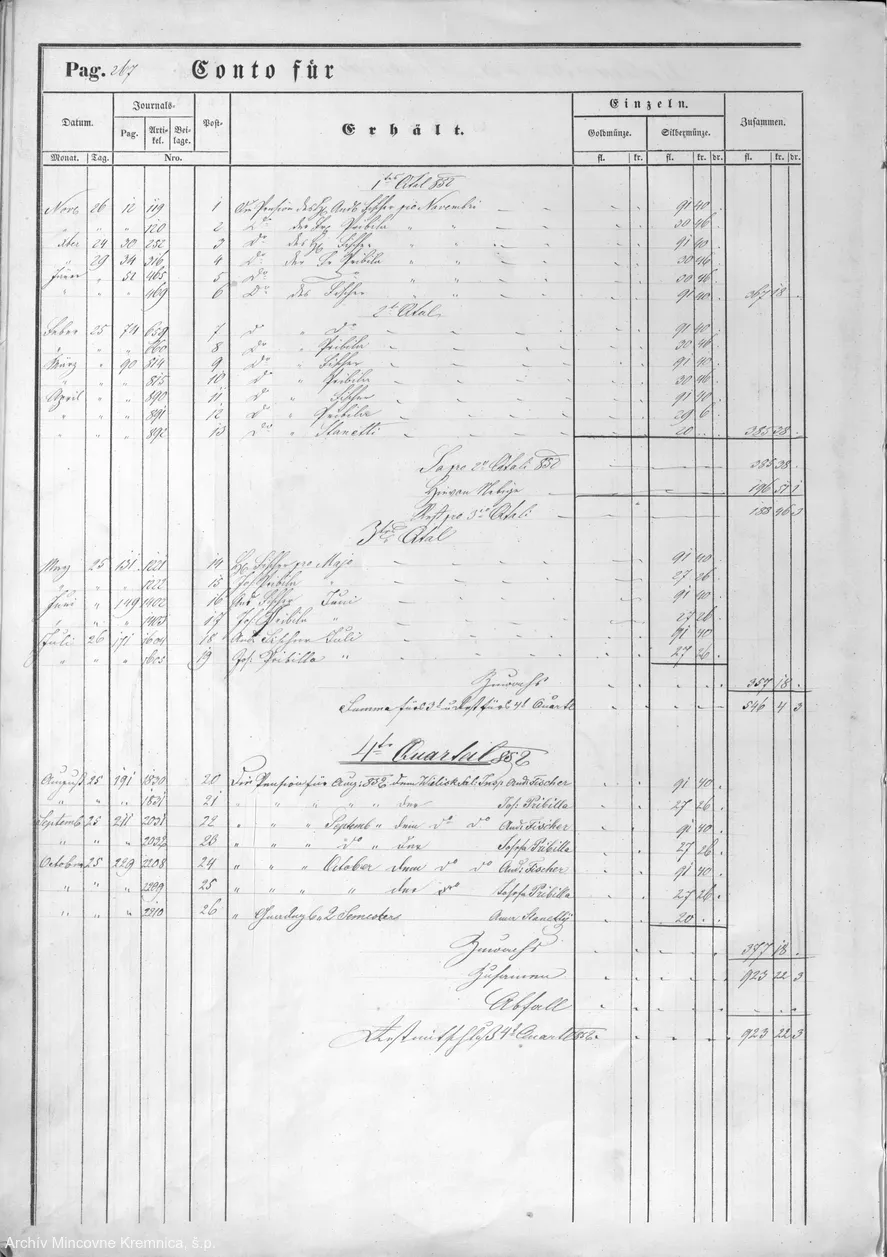 Pag. 267 Conto für
Datum. Journals- Post- Erhält. Einzeln. Zusammen.
Pag. Arti-kel. Bei-lage. Goldmünze. Silbermünze.
Monat. Tag. Nro. fl. kr. fl. kr. dr. fl. kr. dr.
1te Qtal 852
Nov 26 12 119 1 An Pension des H. And. Fischer pro Novembr 91 40
" " 120 2 Do der Fr. Pribila " " 30 46
24 30 252 3 Do des H. Fischer " " 91 40
" 29 34 316 4 Do der Fr Pribila " " 30 46
Jänner " 51 465 5 Do " " 30 46
" " " 469 6 Do des Fischer " " 91 40 367 18
2te Qtal
Feber 25 74 659 7 Do " Do 91 40
" " 660 8 Do " Pribila 30 46
März " 90 814 9 Do " Fischer 91 40
" " " 815 10 Do " Pribila 30 46
April " " 890 11 Do " Fischer 91 40
" " " 891 12 Do " Pribila 29 6
" " " 892 13 Do " Stanetti 20 385 38
Sa pro 2n Qtali 852 385 38
Hievon Nebige 196 51 1
Rest pro 3n Qtali 188 46 3
3tes Qtal
May 25 131 1221 14 H. Fischer pro Majo 91 40
" " 1222 15 Jos. Pribila " 27 26
Juni " 149 1402 16 And. Fischer Juni 91 40
" " " 1403 17 Jos. Pribila " 27 26
Juli 26 171 1604 18 And. Fischer Juli 91 40
" " " 1605 19 Jos. Pribilla " 27 26
Zuwachs 357 18
Summa fürs 3t u Rest fürs 4t Quartl 546 4 3
4te Quartal 852
August 25 191 1830 20 Für Pension für Aug: 852 dem Insp. And. Fischer 91 40
" " " 1831 21 " " " " " der Jos. Pribilla 27 26
Septemb 25 211 2031 22 " " " Septemb " dem do do And: Fischer 91 40
" " " 2032 23 " " " do " der Josefa Pribilla 27 26
October 25 229 2208 24 " " " October dem do do And: Fischer 91 40
" " " 2209 25 " " " " der do Josefa Pribilla 27 26
" " " 2210 26 " Gnadengb. 2 Semesters Anna Stanetty 20
Zuwachs 377 18
Zusamen 923 22 3
Abfall
Rest mit Schluß 4t Quartl 852. 923 22 3
Archív Mincovne Kremnica, š.p.